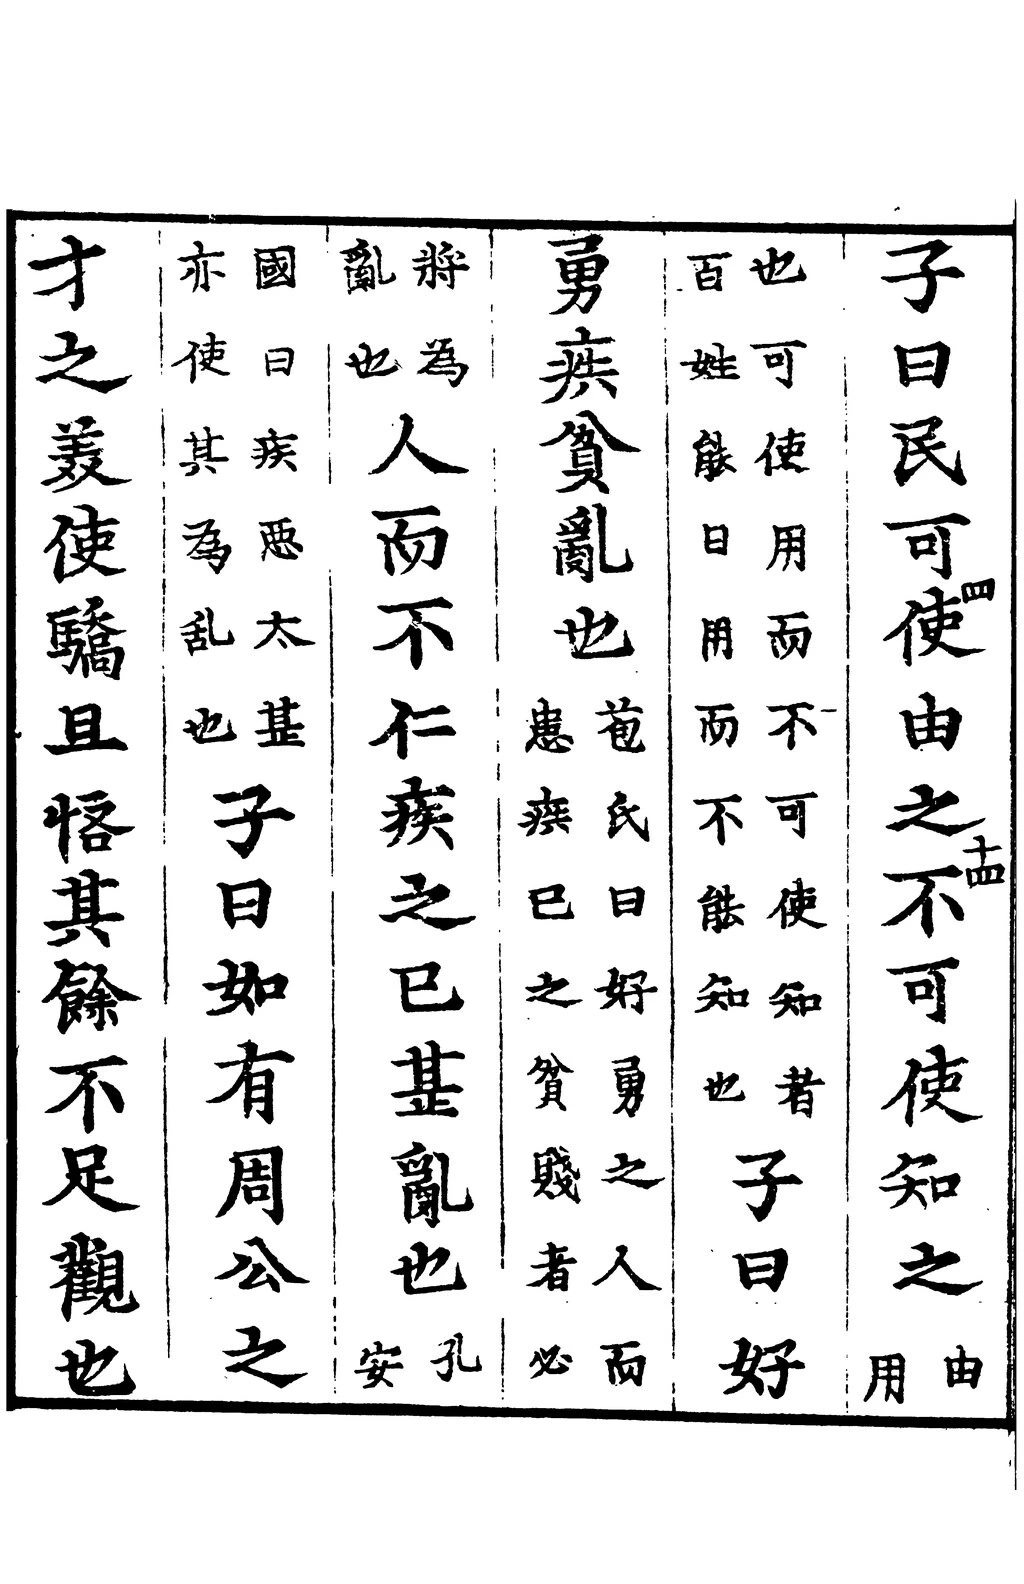 子曰民可使由之不可使知之由用
也可使用而不可使知者百姓能日用而不能知也子曰好
勇疾貧亂也苞氏曰好勇之人而患疾已之貧賤者必
將為亂也人而不仁疾之已甚亂也孔安
國曰疾悪太甚亦使其為乱也子曰如有周公之
才之美使驕且悋其餘不足觀也
四
十四